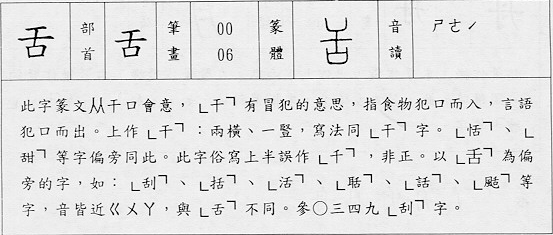 舌 部首 舌 筆畫 00 06 篆體 舌 音讀 ㄕㄜˊ
此字篆文从干口會意,「干」有冒犯的意思,指食物犯口而入,言語
犯口而出。上作「干」:兩橫、一豎,寫法同「干」字。「恬」、「
甜」等字偏旁同此。此字俗寫上半誤作「千」,非正。以「舌」為偏
旁的字,如:「刮」、「括」、「活」、「聒」、「話」、「颳」等
字,音皆近ㄍㄨㄚ,與「舌」不同。參○三四九「刮」字。